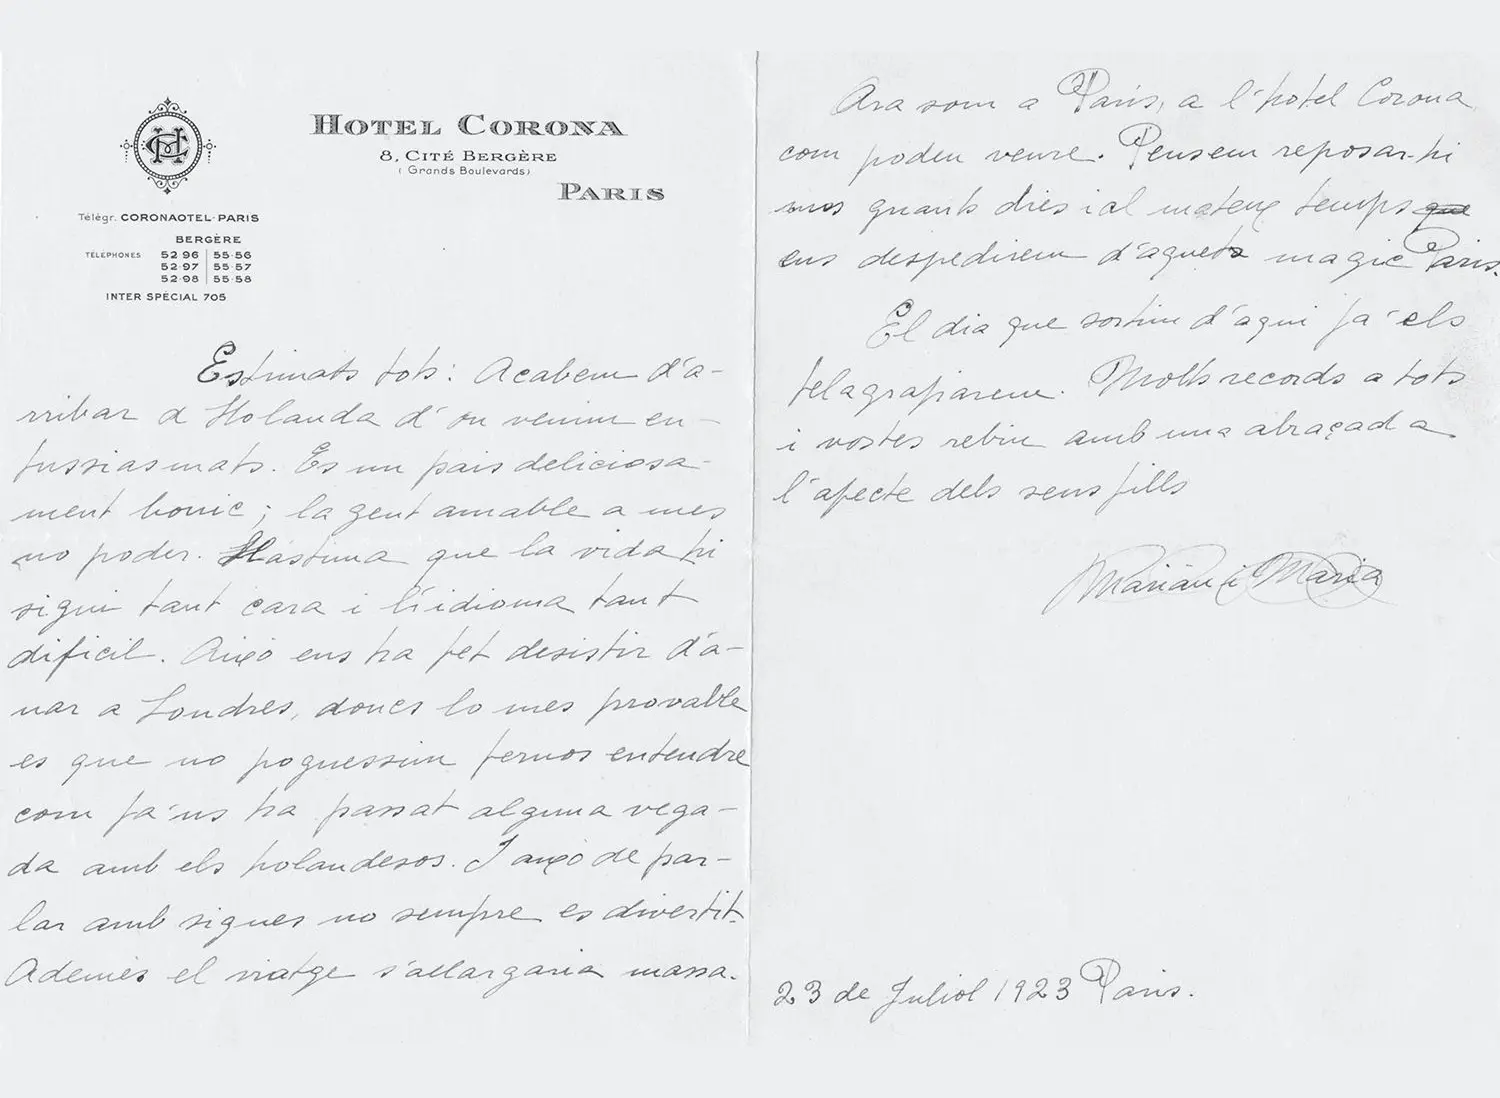 HC
HOTEL CORONA
8, CITÉ BERGÈRE
(Grands Boulevards)
PARIS
Télégr. CORONAOTEL-PARIS
BERGÈRE
TÉLÉPHONES 52·96 | 55·56
52·97 | 55·57
52·98 | 55·58
INTER SPÉCIAL 705
Estimats tots: Acabem d'a-
rribar d Holanda d'on venim en-
tussiasmats. Es un pais deliciosa-
ment bonic; la gent amable a mes
no poder. Llástima que la vida hi
sigui tant cara i l'idioma tant
dificil. Aixó ens ha fet desistir d'a-
nar a Londres, doncs lo mes provable
es que no poguessim fernos entendre
com ja'ns ha passat alguna vega-
da amb els holandesos. I aixó de par-
lar amb signes no sempre es divertit.
Ademés el viatge s'allargaria massa.
Ara som a Paris, a l'hotel Corona
com poden veure. Pensem reposar-hi
uns quants dies i al mateix temps que
ens despedirem d'aquets magic Paris.
El dia que sortim d'aqui ja els
telagrafiarem. Molts records a tots
i vostes rebin amb una abraçada
l'afecte dels seus fills
Marián i Maria
23 de Juliol 1923 Paris.